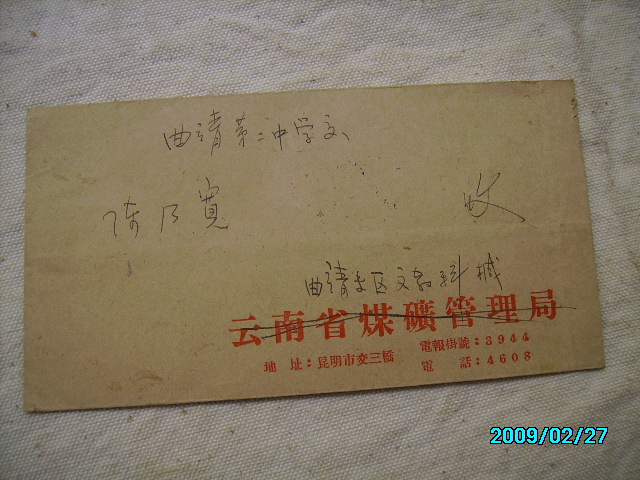 曲靖第二中学交
陈乃宽 收
曲靖专区文教科 械
云南省煤礦管理局
地 址：昆明市交三橋
電報掛號：3944
電 話：4608
2009/02/27